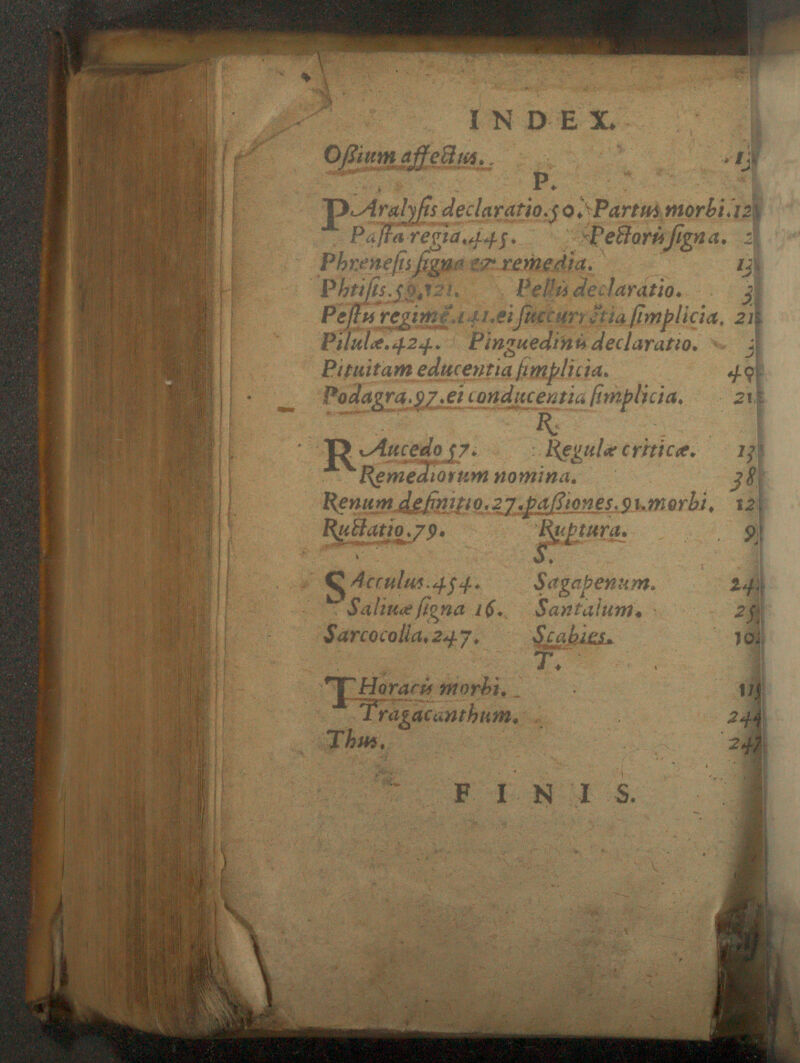 INDEX.
Oſsium affectus. 13
P.
PAralyſis declaratio.50. Partus morbi.12
Paſta regia.445. Pectoris ſigna. 2
Phreneſis ſigna & remedia. 13
Phtiſis.59,121. Pellis declaratio. 3
Peſtis regimē.141.ei ſuccurrētia ſimplicia, 21
Pilulæ.424. Pinguedinis declaratio. 3
Pituitam educentia ſimplicia. 40
Podagra.97.ei conducentia ſimplicia. 21
R.
RAucedo 57. Regulæ criticæ. 13
Remediorum nomina. 38
Renum definitio.27.paſsiones.91.morbi, 12
Ructatio.79. Ruptura. 9
S.
SAcculus.454. Sagapenum. 24
Saliuæ ſigna 16. Santalum. 25
Sarcocolla, 247. Scabies. 10
T.
THoracis morbi. 11
Tragacanthum. 244
Thus. 247
FINIS.